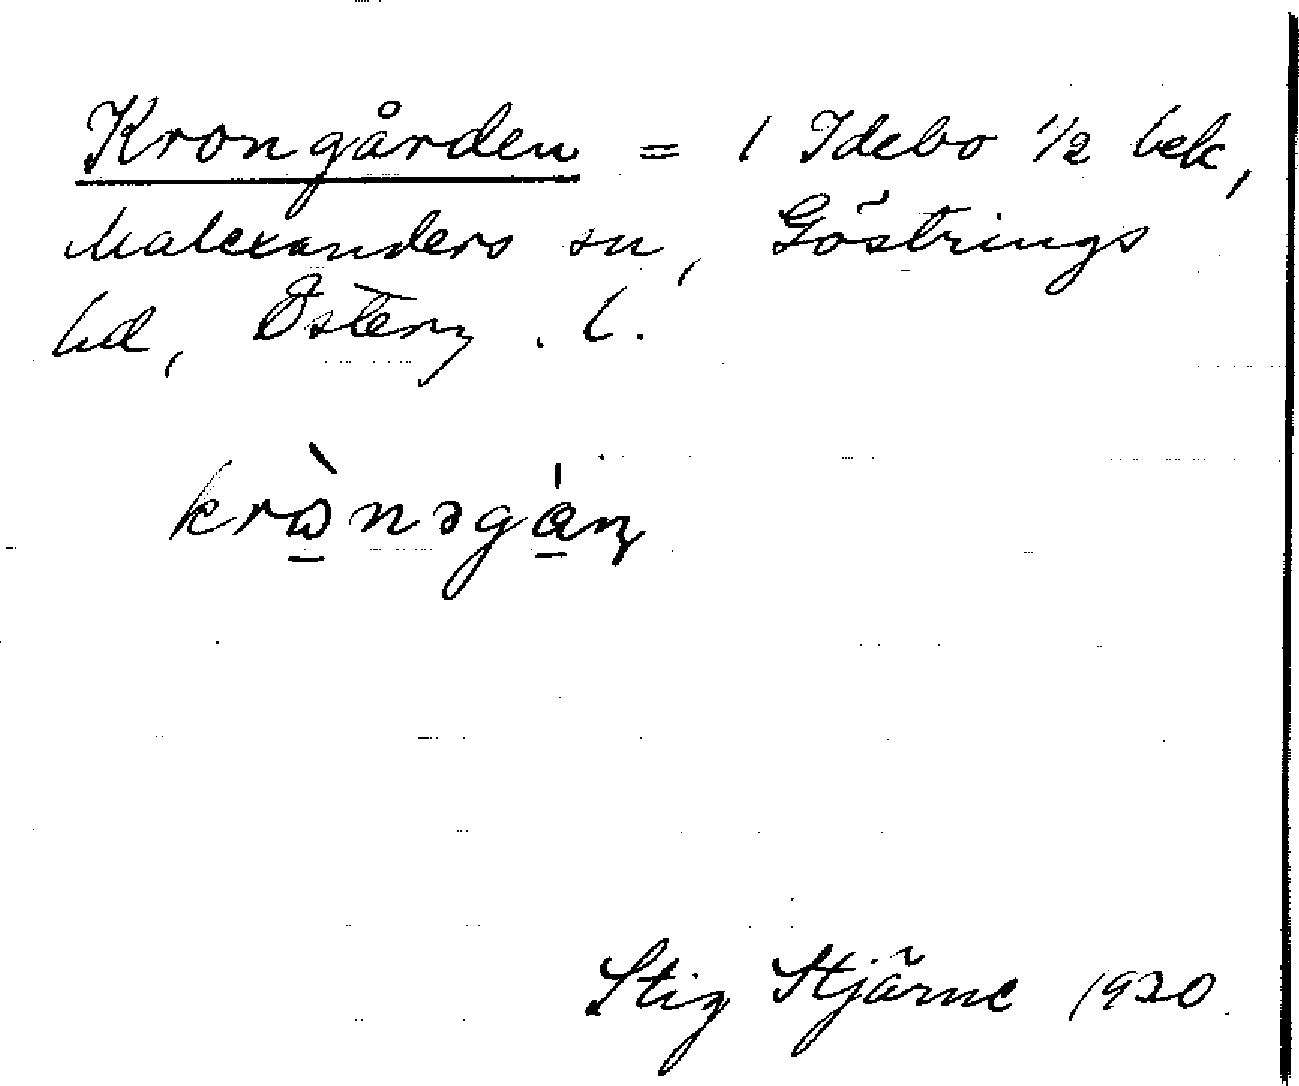 Krongården = 1 Idebo 1/2 bek,
Malexanders sn, Göstrings
hd, Österg. l.
krɷ̠̀nəgá̠ɳ
Stig Stjärne 1920.